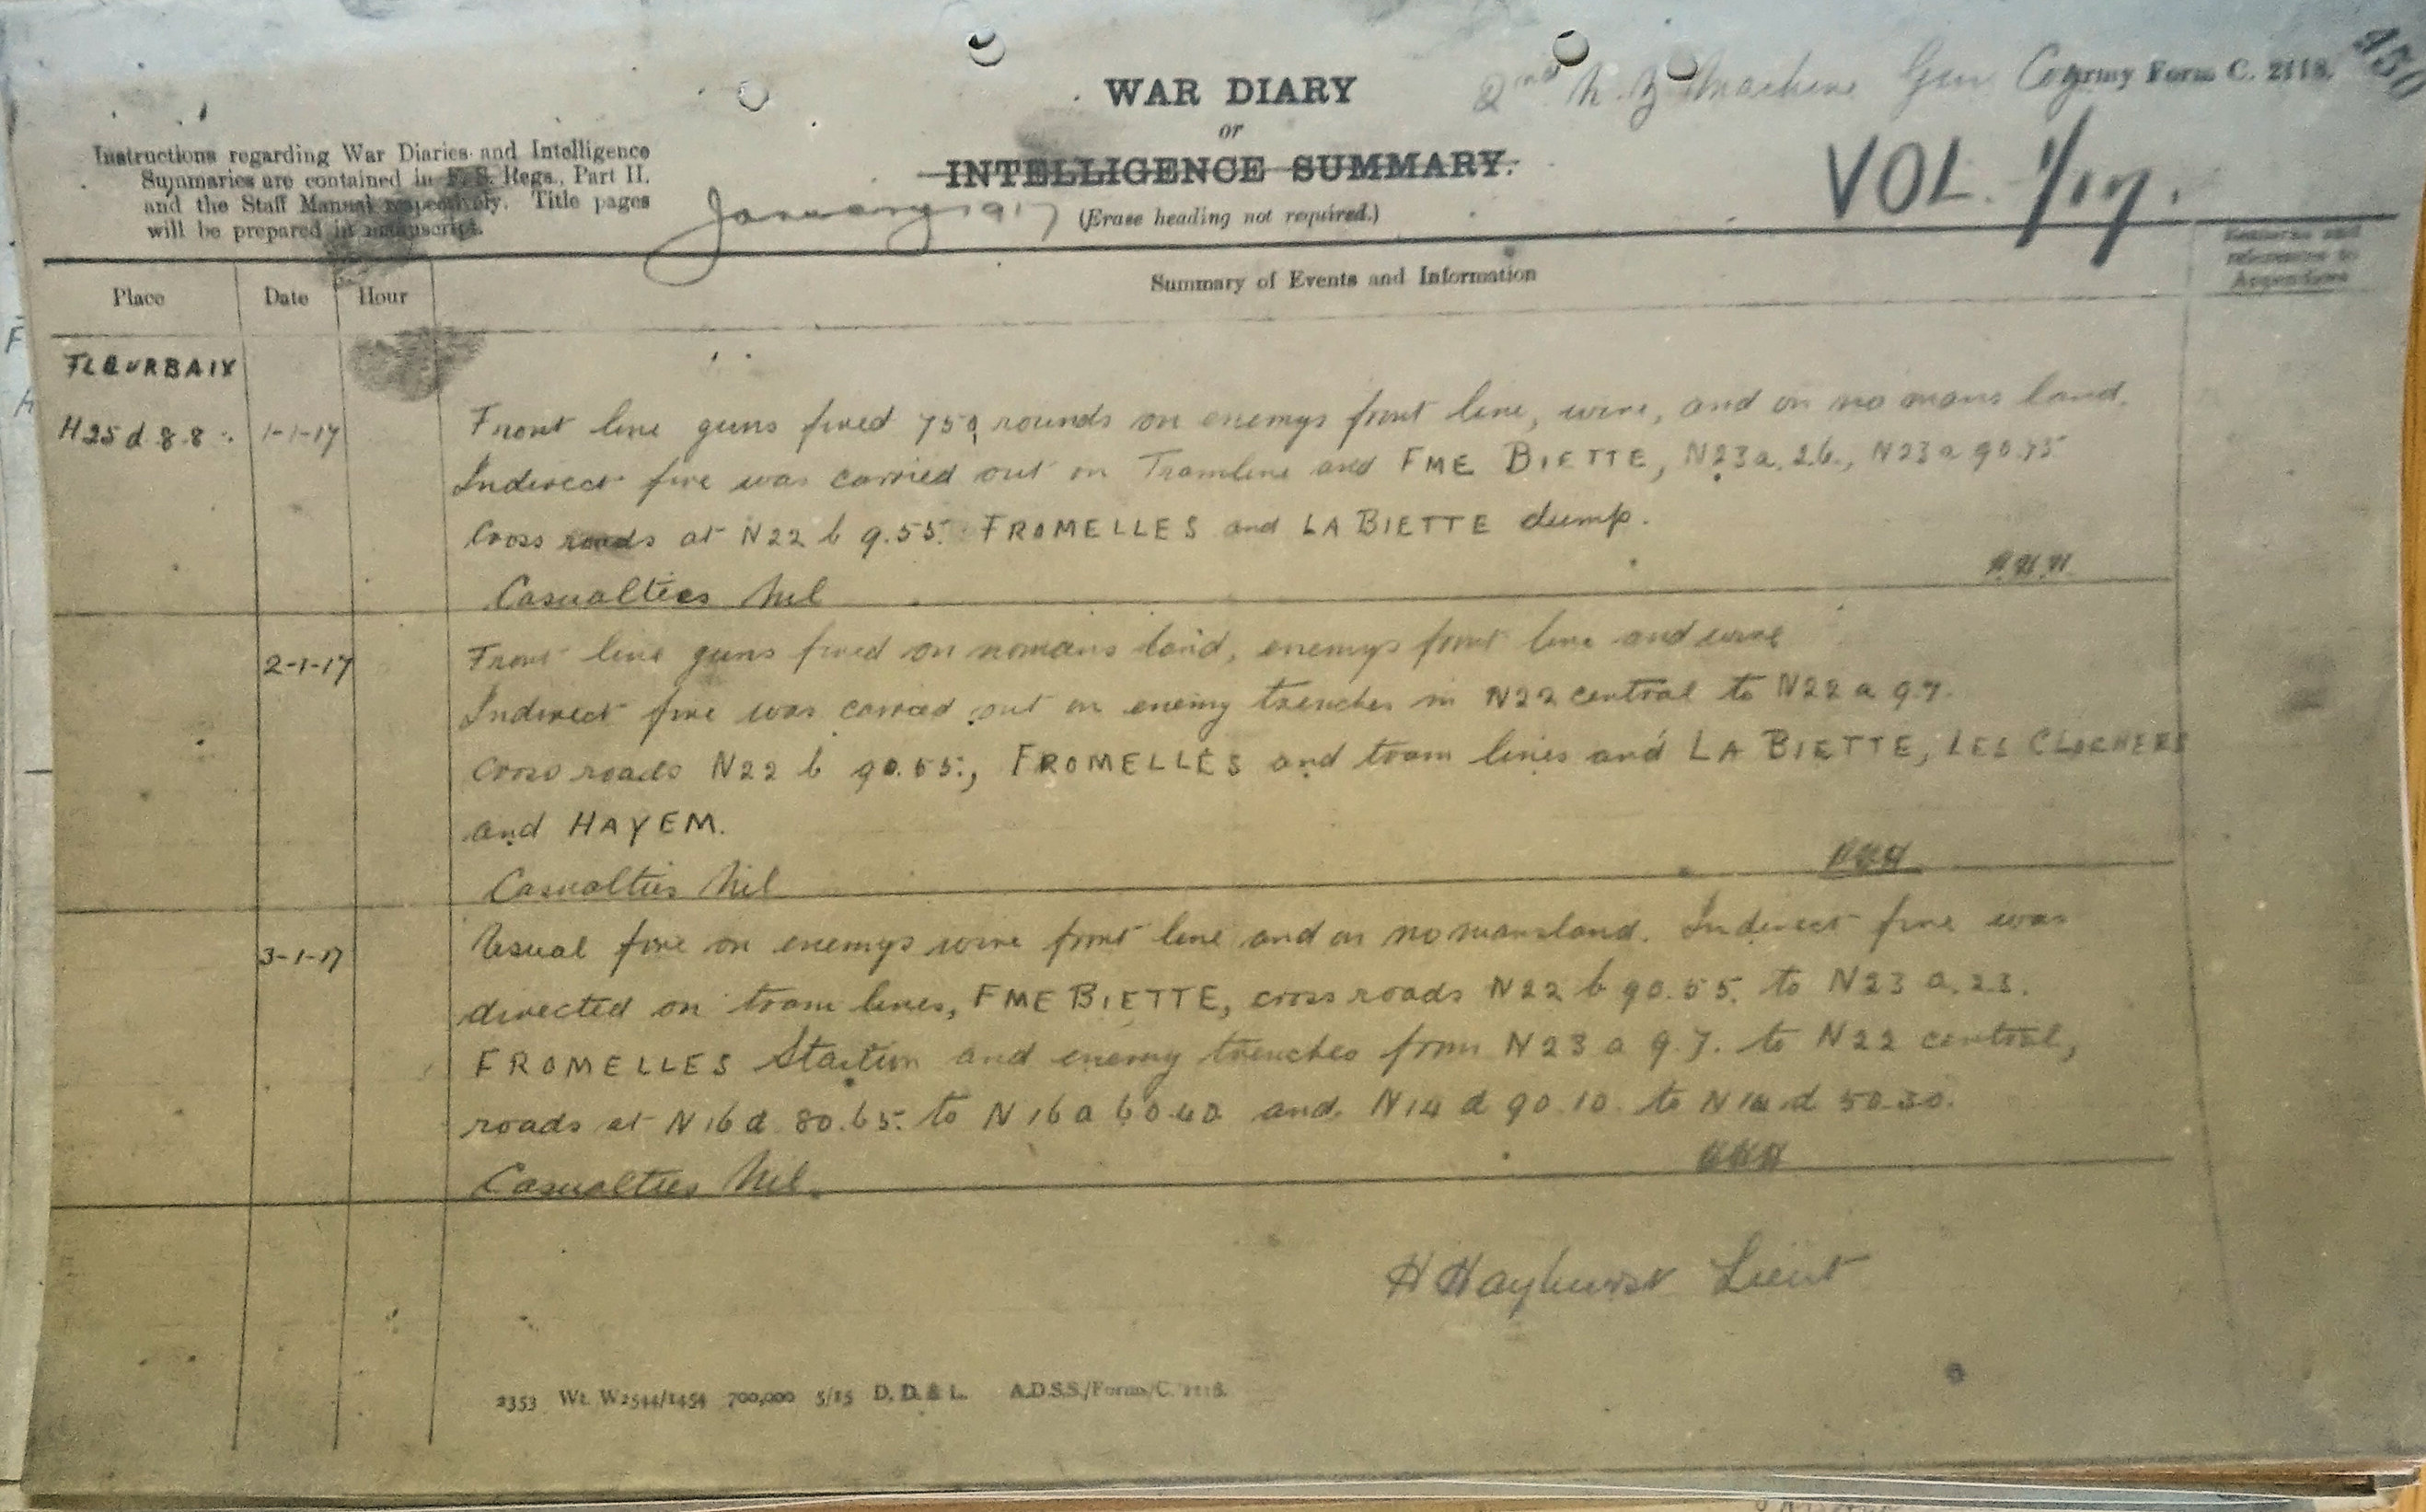 2nd N.Z Machine Gun Coy
Army Form C. 2118.
WAR DIARY
or
INTELLIGENCE SUMMARY.
(Erase heading not required.)
VOL. 1/17.
January 1917
Instructions regarding War Diaries and Intelligence
Summaries are contained in F.S. Regs., Part II.
and the Staff Manual respectively. Title pages
will be prepared in manuscript.
Place Date Hour Summary of Events and Information Remarks and
references to
Appendices
FLEURBAIX
H25 d 8.8 1-1-17 Front line guns fired 750 rounds on enemys front line, wire, and on no mans land.
Indirect fire was carried out on Tramline and FME BIETTE, N23a.2.6., N23a 90.75
Cross roads at N22 b 9.55. FROMELLES and LA BIETTE dump.
Casualties Nil
2-1-17 Front line guns fired on nomans land, enemys front line and wire
Indirect fire was carried out on enemy trenches in N22 central to N22 a 9.7.
Cross roads N22 b 90.55., FROMELLES and tram lines and LA BIETTE, LES CLOCHERS
and HAYEM.
Casualties Nil
3-1-17 Usual fire on enemys wire front line and on nomansland. Indirect fire was
directed on tram lines, FME BIETTE, cross roads N22 b 90.55. to N23 a.2.3.
FROMELLES Station and enemy trenches from N23 a 9.7. to N22 central,
roads at N16 d 80.65. to N16 a 60.40 and N14 d 90.10. to N14 d 50.30.
Casualties Nil.
H Hayhurst Lieut
2353 Wt. W2544/1454 700,000 5/15 D. D. & L. A.D.S.S./Forms/C. 2118.